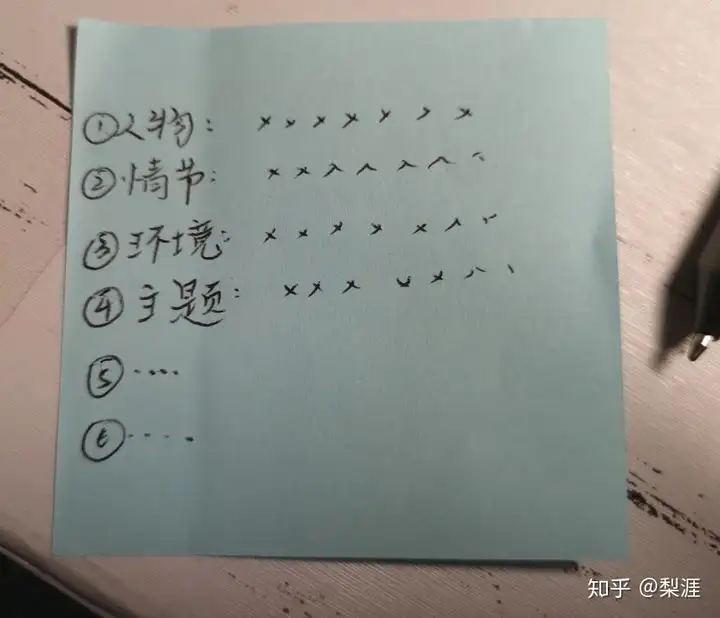 ①人物：×××××××
②情节：×××××××
③环境：×××××××
④主题：×××××××
⑤····
⑥····
知乎 @梨涯